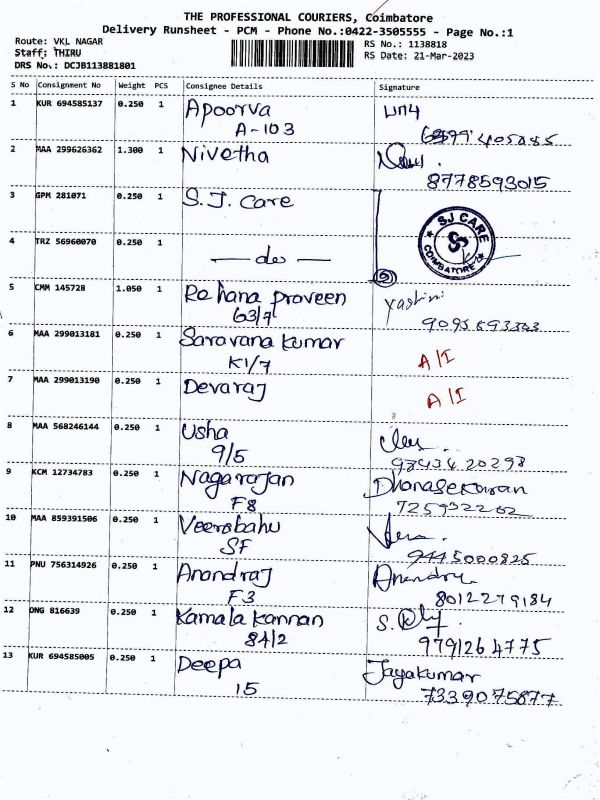 THE PROFESSIONAL COURIERS, Coimbatore
Delivery Runsheet - PCM - Phone No.:0422-3505555 - Page No.:1
Route: VKL NAGAR RS No.: 1138818
Staff: THIRU RS Date: 21-Mar-2023
DRS No.: DCJB113881801
S No Consignment No Weight PCS Consignee Details Signature
1 KUR 694585137 0.250 1 Apoorva
A-103
2 MAA 299626362 1.300 1 Nivetha
8778593015
3 GPM 281071 0.250 1 S.J. Care
SJ CARE
COIMBATORE
4 TRZ 56960070 0.250 1 — do —
5 CMM 145728 1.050 1 Rehana Proveen
63/7
6 MAA 299013181 0.250 1 Saravana kumar A/I
K1/7
7 MAA 299013190 0.250 1 Devaraj A/I
8 MAA 568246144 0.250 1 Usha
9/5 98434 20298
9 KCM 12734783 0.250 1 Nagarajan Dhanasekaran
F8
10 MAA 859391506 0.250 1 Veerabahu
SF 9445000825
11 PNU 756314926 0.250 1 Anandraj
F3 8012279184
12 DNG 816639 0.250 1 Kamala kannan
84/2 9791264775
13 KUR 694585005 0.250 1 Deepa Jayakumar
15 7339075877